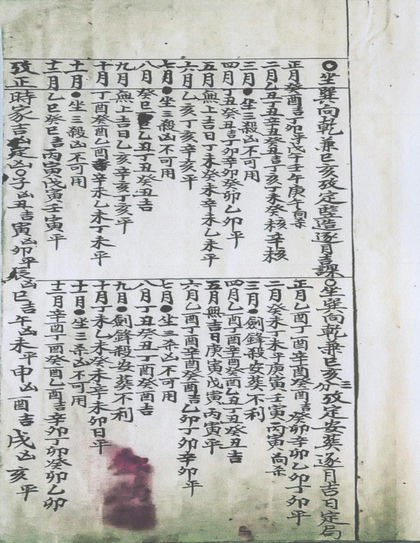 ○坐巽向乾兼巳亥攷定豎造逐月吉課○坐巽向乾兼巳亥三分攷定安葬逐月吉日定局
正月癸酉吉丁卯平戊午壬午庚午尚采
二月乙丑丁丑辛丑癸丑吉丁亥丁未癸
三月●坐三殺凶不可用
四月丁丑癸丑吉丁卯辛卯癸卯乙卯平
五月無上吉日丁未癸未辛未乙未平
六月乙亥丁亥辛亥平
七月●坐三殺凶不可用
八月癸巳乙丑丁丑癸丑吉
九月無上吉日乙亥辛亥丁亥平
十月丁酉癸酉乙酉吉辛未乙未丁未平
十一月●坐三殺凶不可用
十二月乙巳癸巳吉丙寅戊寅壬寅平
正月乙酉丁酉辛酉癸酉吉癸卯辛卯乙卯丁卯平
二月癸未丁未平庚寅壬寅丙寅尚采
三月●劍鋒殺安葬不利
四月乙酉丁酉辛酉癸酉乙丑丁丑癸丑吉
五月無吉日庚寅戊寅丙寅平
六月乙酉丁酉辛酉癸酉吉乙卯丁卯辛卯平
七月●坐三殺凶不可用
八月丁丑癸丑丁酉癸酉吉
九月●劍鋒殺安葬不利
十月丁未乙未癸未辛未卯日平
十一月●坐三殺凶不可用
十二月辛酉丁酉癸酉乙酉吉辛卯丁卯癸卯乙卯
攷正時家吉凶○子凶丑吉寅凶卯平辰凶巳吉午凶未平申凶酉吉戌凶亥平